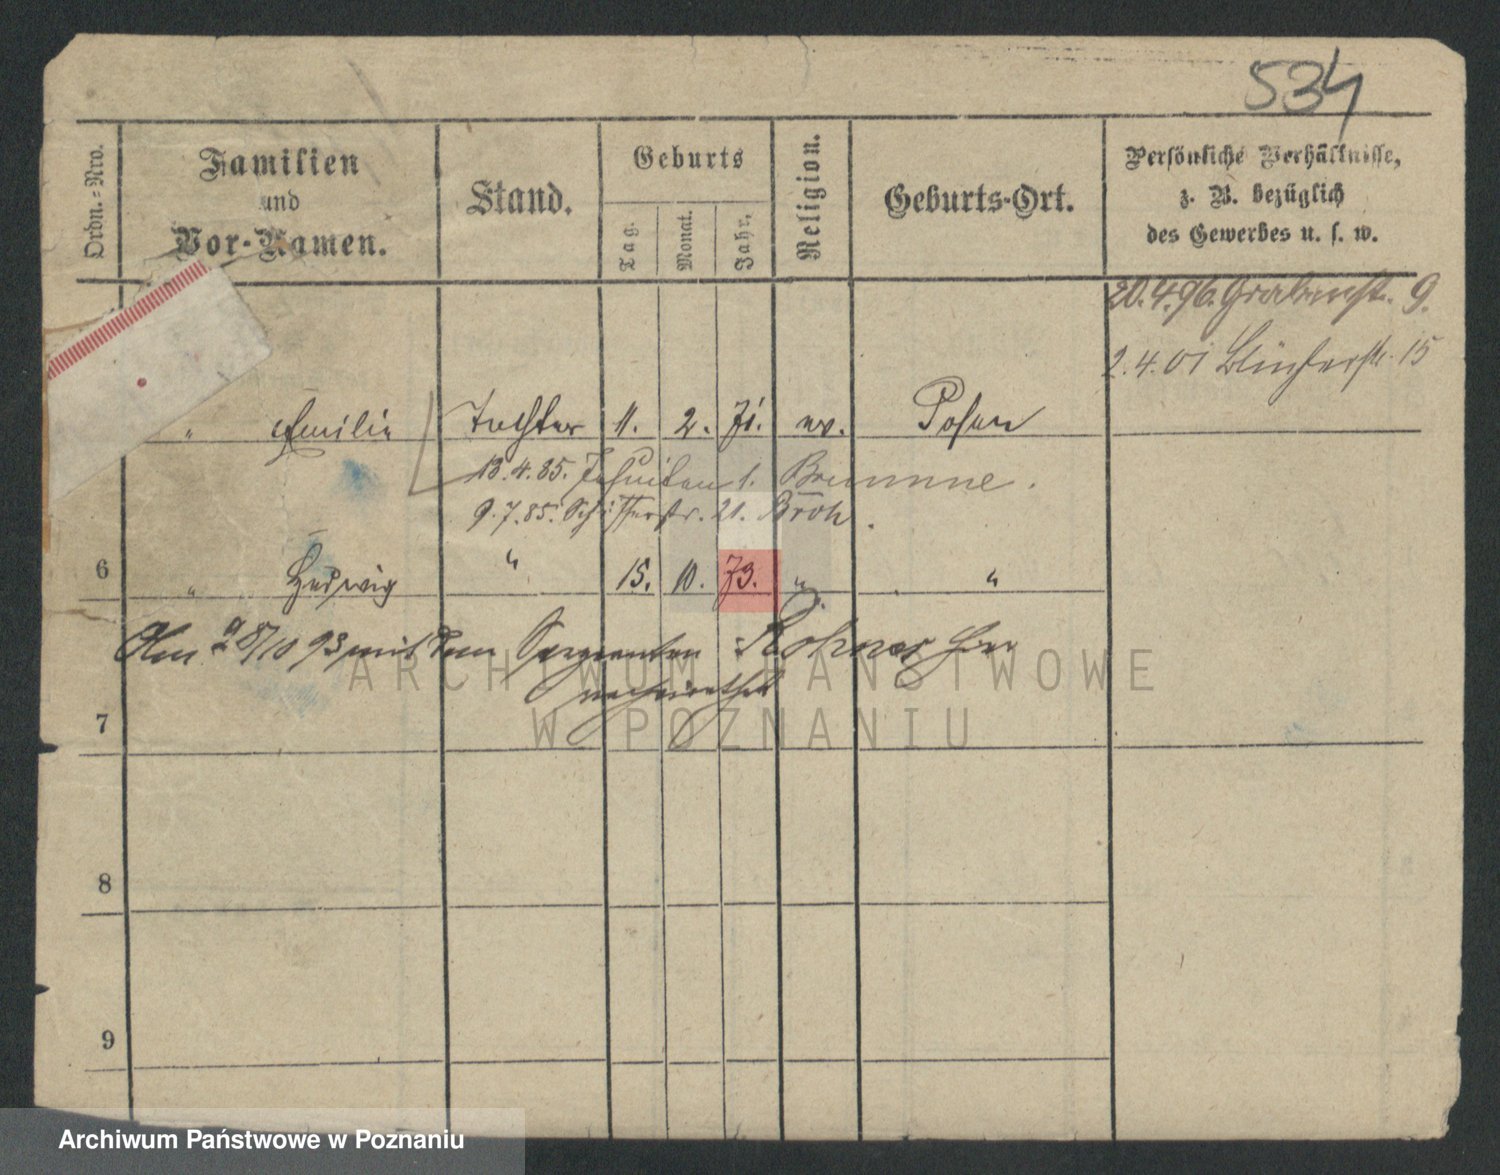 534
Ordn.-Nro.
Familien
und
Vor-Namen.
Stand.
Geburts
Tag.
Monat.
Jahr.
Religion.
Geburts-Ort.
Persönliche Verhältnisse,
z. B. bezüglich
des Gewerbes u. s. w.
20.4.96. Grabenstr. 9.
2.4.01 Blücherstr. 15
" Emilie Tochter 11. 2. 71. ev. Posen
13.4.85. Jesuiten 1. Brumme.
9.7.85. Schifferstr. 21. Broh.
6 " Hedwig " 15. 10. 73. " "
Am 10 93 mit dem Sergeanten
verheirathet
7
8
9
ARCHIWUM PAŃSTWOWE
W POZNANIU
Archiwum Państwowe w Poznaniu